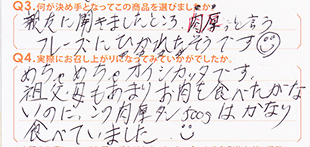 Q3.何が決め手となってこの商品を選びましたか?
親友に聞きましたところ、肉厚っと言う
フレーズにひかれたそうです
Q4.実際にお召し上がりになってみていかがでしたか。
めちゃめちゃオイシカッタです。
祖父、母もあまりお肉を食べたがらな
いのに、この肉厚タン500gはかなり
食べていました